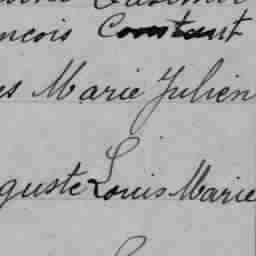 ncois Constant
es Marie Julien
guste Louis Marie